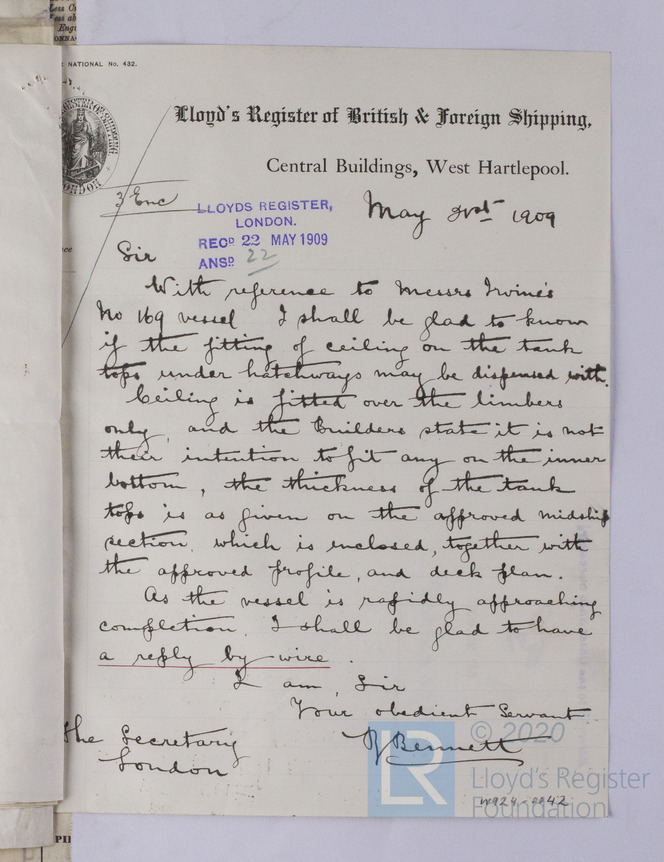 NATIONAL No. 432.
LONDON
Lloyd's Register of British & Foreign Shipping,
Central Buildings, West Hartlepool.
3 Enc
LLOYDS REGISTER,
LONDON.
RECD 22 MAY 1909
ANSD 22
May 21st 1909
Sir
With reference to Messrs Irvine's
No 169 vessel I shall be glad to know
if the fitting of ceiling on the tank
tops under hatchways may be dispensed with.
Ceiling is fitted over the limbers
only, and the Builders state it is not
their intention to fit any on the inner
bottom, the thickness of the tank
tops is as given on the approved midship
section, which is enclosed, together with
the approved profile, and deck plan.
As the vessel is rapidly approaching
completion, I shall be glad to have
a reply by wire.
I am, Sir
Your obedient Servant
Bennett
The Secretary
London
LR
© 2020
Lloyd's Register
Foundation